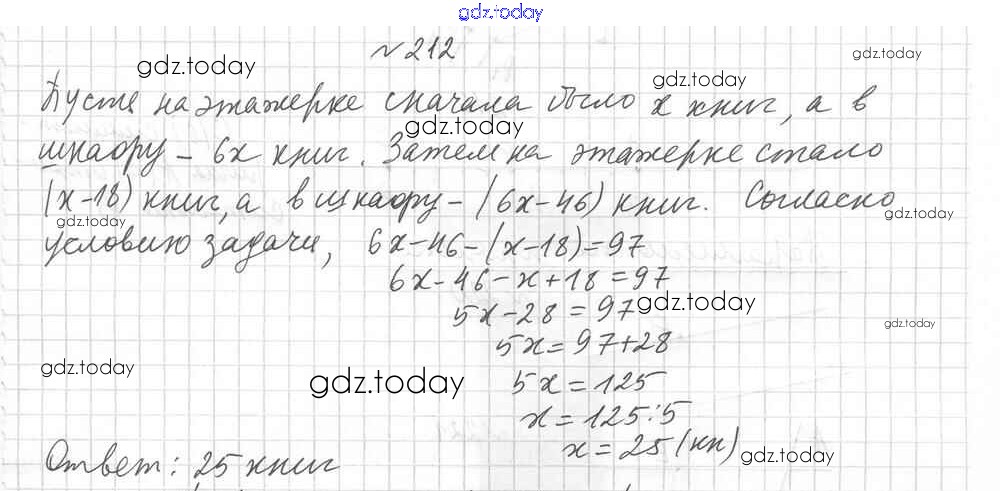 gdz.today
№ 212
gdz.today
gdz.today
gdz.today
Пусть на этажерке сначала было x книг, а в
gdz.today
шкафу – 6x книг. Затем на этажерке стало
(x-18) книг, а в шкафу – (6x-46) книг. Согласно
gdz.today
gdz.today
условию задачи, 6x-46-(x-18)=97
6x-46-x+18=97
5x-28=97
gdz.today
5x=97+28
gdz.today
gdz.today
gdz.today
5x=125
x=125:5
x=25(кн)
gdz.today
Ответ: 25 книг